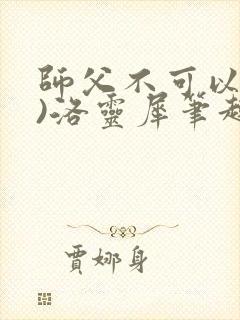 師父不可以
)洛靈犀筆趣
賈娜身